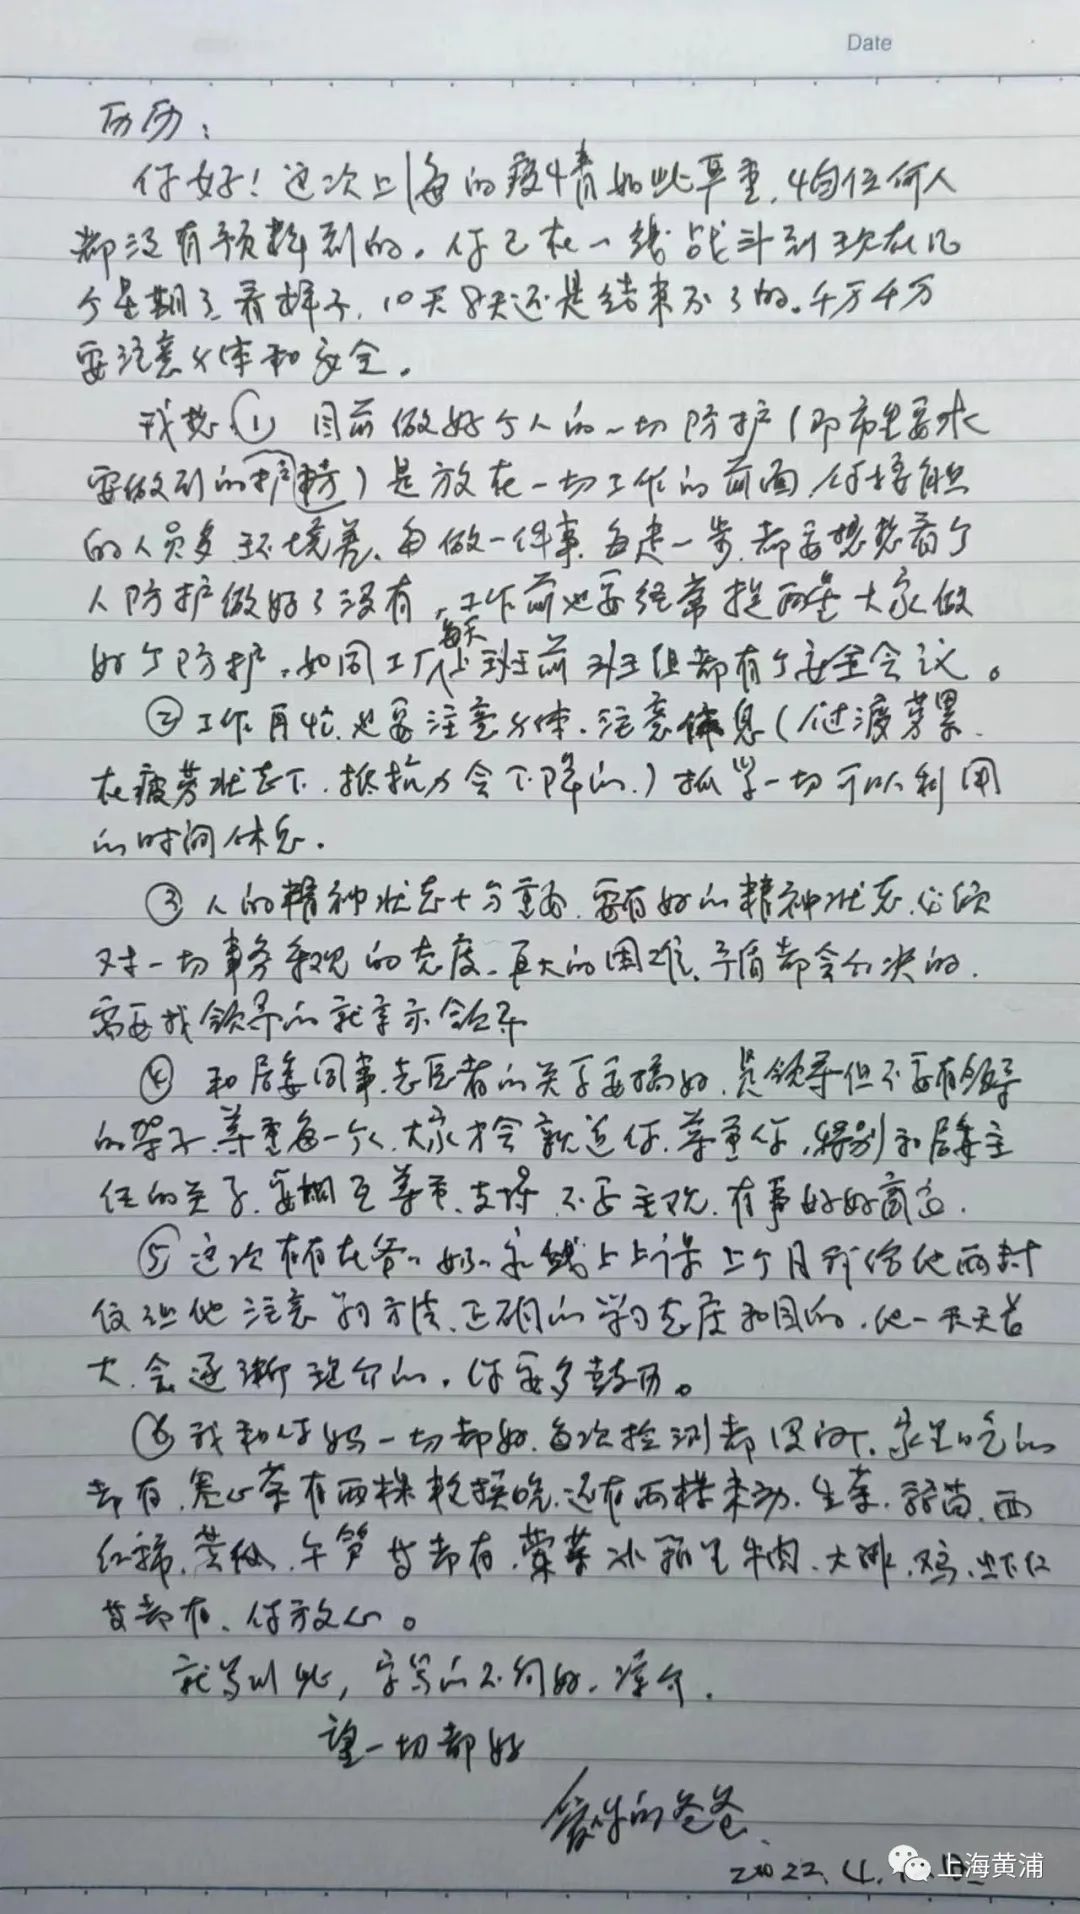 Date
历历：
你好！这次上海的疫情如此严重，恰任何人
都没有预料到的。你已在一线战斗到现在几
个星期了，看样子，10天8天还是结束不了的。千万千万
要注意身体和安全。
我想① 目前做好个人的一切防护（即市里要求
要做到的护）是放在一切工作的前面，你接触
的人员多，环境差，每做一件事，每走一步，都要想想看个
人防护做好了没有，工作前也要经常提醒大家做
好个防护，如同工厂每天上班前班组都有个安全会议。
②工作再忙，也要注意身体，注意休息（过渡劳累，
在疲劳状态下，抵抗力会下降的，）抓紧一切可以利用
的时间休息.
③人的精神状态十分重要，要有好的精神状态，必须
对一切事务乐观的态度，再大的困难、矛盾都会介决的，
需要找领导的就请示领导
④ 和居委同事、志愿者的关系要搞好，是领导但不要有领导
的架子，尊重每一个人，大家才会亲近你，尊重你，特别和居委主
任的关系，要相互尊重、支持，不要主观，有事好好商量.
⑤这次在爷爷奶奶家线上上课，上个月我给他两封
信跟他注意学习方法、正确的学习态度和目的，他一天天长
大，会逐渐理介的，你要多鼓历。
⑥我和你妈一切都好，每次检测都阴的，家里吃的
都有，卷心菜有两棵，还有两棵，生菜，西
红柿，午笋皆都有，荤菜冰箱里牛肉、大排、鸡、虾仁
皆都有，你放心。
就写到此，字写的不好，谅介.
望一切都好
爱你的爸爸
2022.4.
上海黄浦